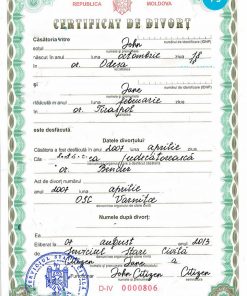 REPUBLICA MOLDOVA
CERTIFICAT DE DIVORȚ
Căsătoria între
soțul John
numărul de identificare (IDNP)
născut în anul luna octombrie ziua
or. Odesa
și Jane
numărul de identificare (IDNP)
născută în anul luna februarie ziua
or. Tiraspol
este desfăcută
Datele divorțului
Căsătoria a fost desfăcută în anul 2007 luna aprilie
Judecătorească
or. Bender
Act de divorț numărul
anul 2007 aprilie
OSC Varnița
Numele după divorț:
Eliberat la 07 august 2013
Serviciul Stare Civilă
Citizen Jane
John Citizen
Citizen
D-IV 0000806